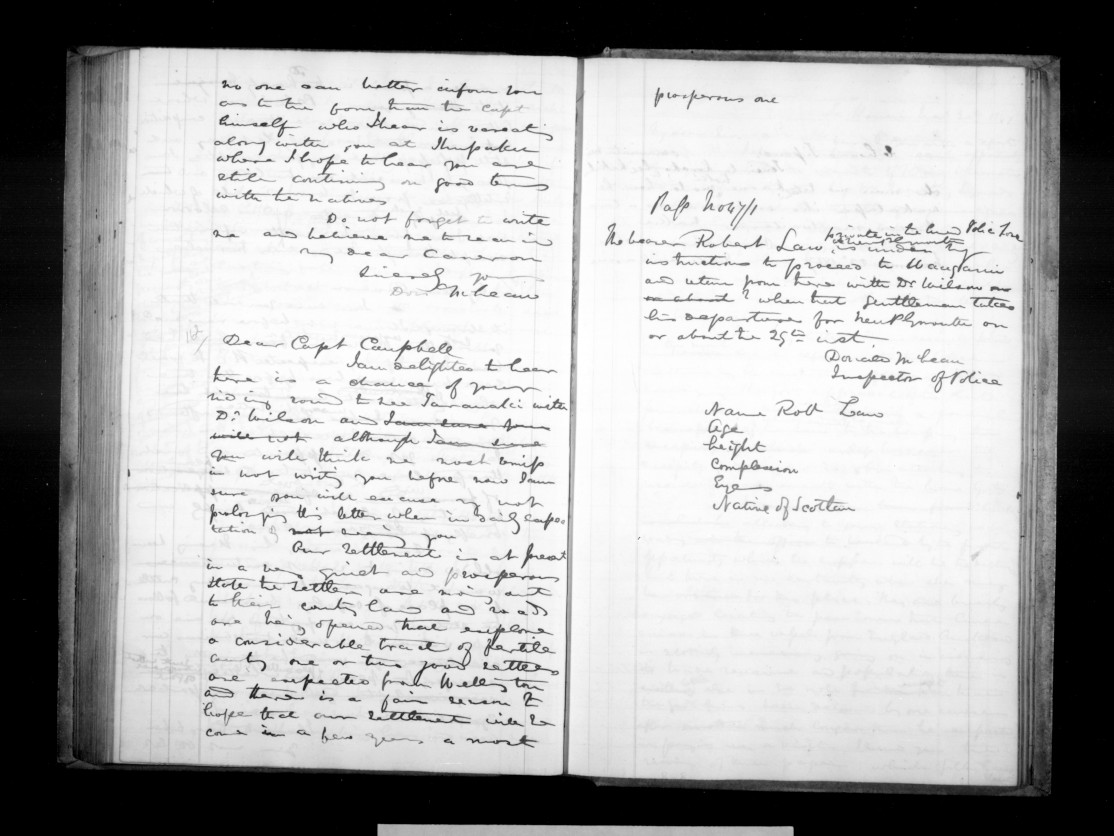 no one can better inform you
as to the from than the Capt
himself who I hear is
along with you at
where I hope to hear you are
still continuing on good terms
with the natives
Do not forget to write
me and believe me to remain
my dear Cameron
Sincerely yours
Don McLean
Dear Capt Campbell
I am delighted to hear
there is a chance of your
riding round to see Taranaki with
Dr Wilson and I am sure you
will not although I am sure
you will think me most remiss
in not writing you before now I am
sure you will excuse my not
prolonging this letter when in daily expec
tation of not seeing you
Our settlement is at present
in a very quiet and prosperous
state the settlers are going out
to their country land and roads
are being opened that explore
a considerable tract of fertile
country one or two good settlers
are expected from Wellington
and there is a fair reason to
hope that our settlement will be
come in a few years a most
prosperous one
Pass No 47/1
private in the land Police Force
The bearer Robert Law is under
instructions to proceed to Wanganui
and return from here with Dr Wilson on
or about ? when that Gentleman takes
his departure for New Plymouth on
or about the 25th inst.
Donald McLean
Inspector of Police
Name Robt Law
Age
height
Complexion
Eyes
Native of Scotland